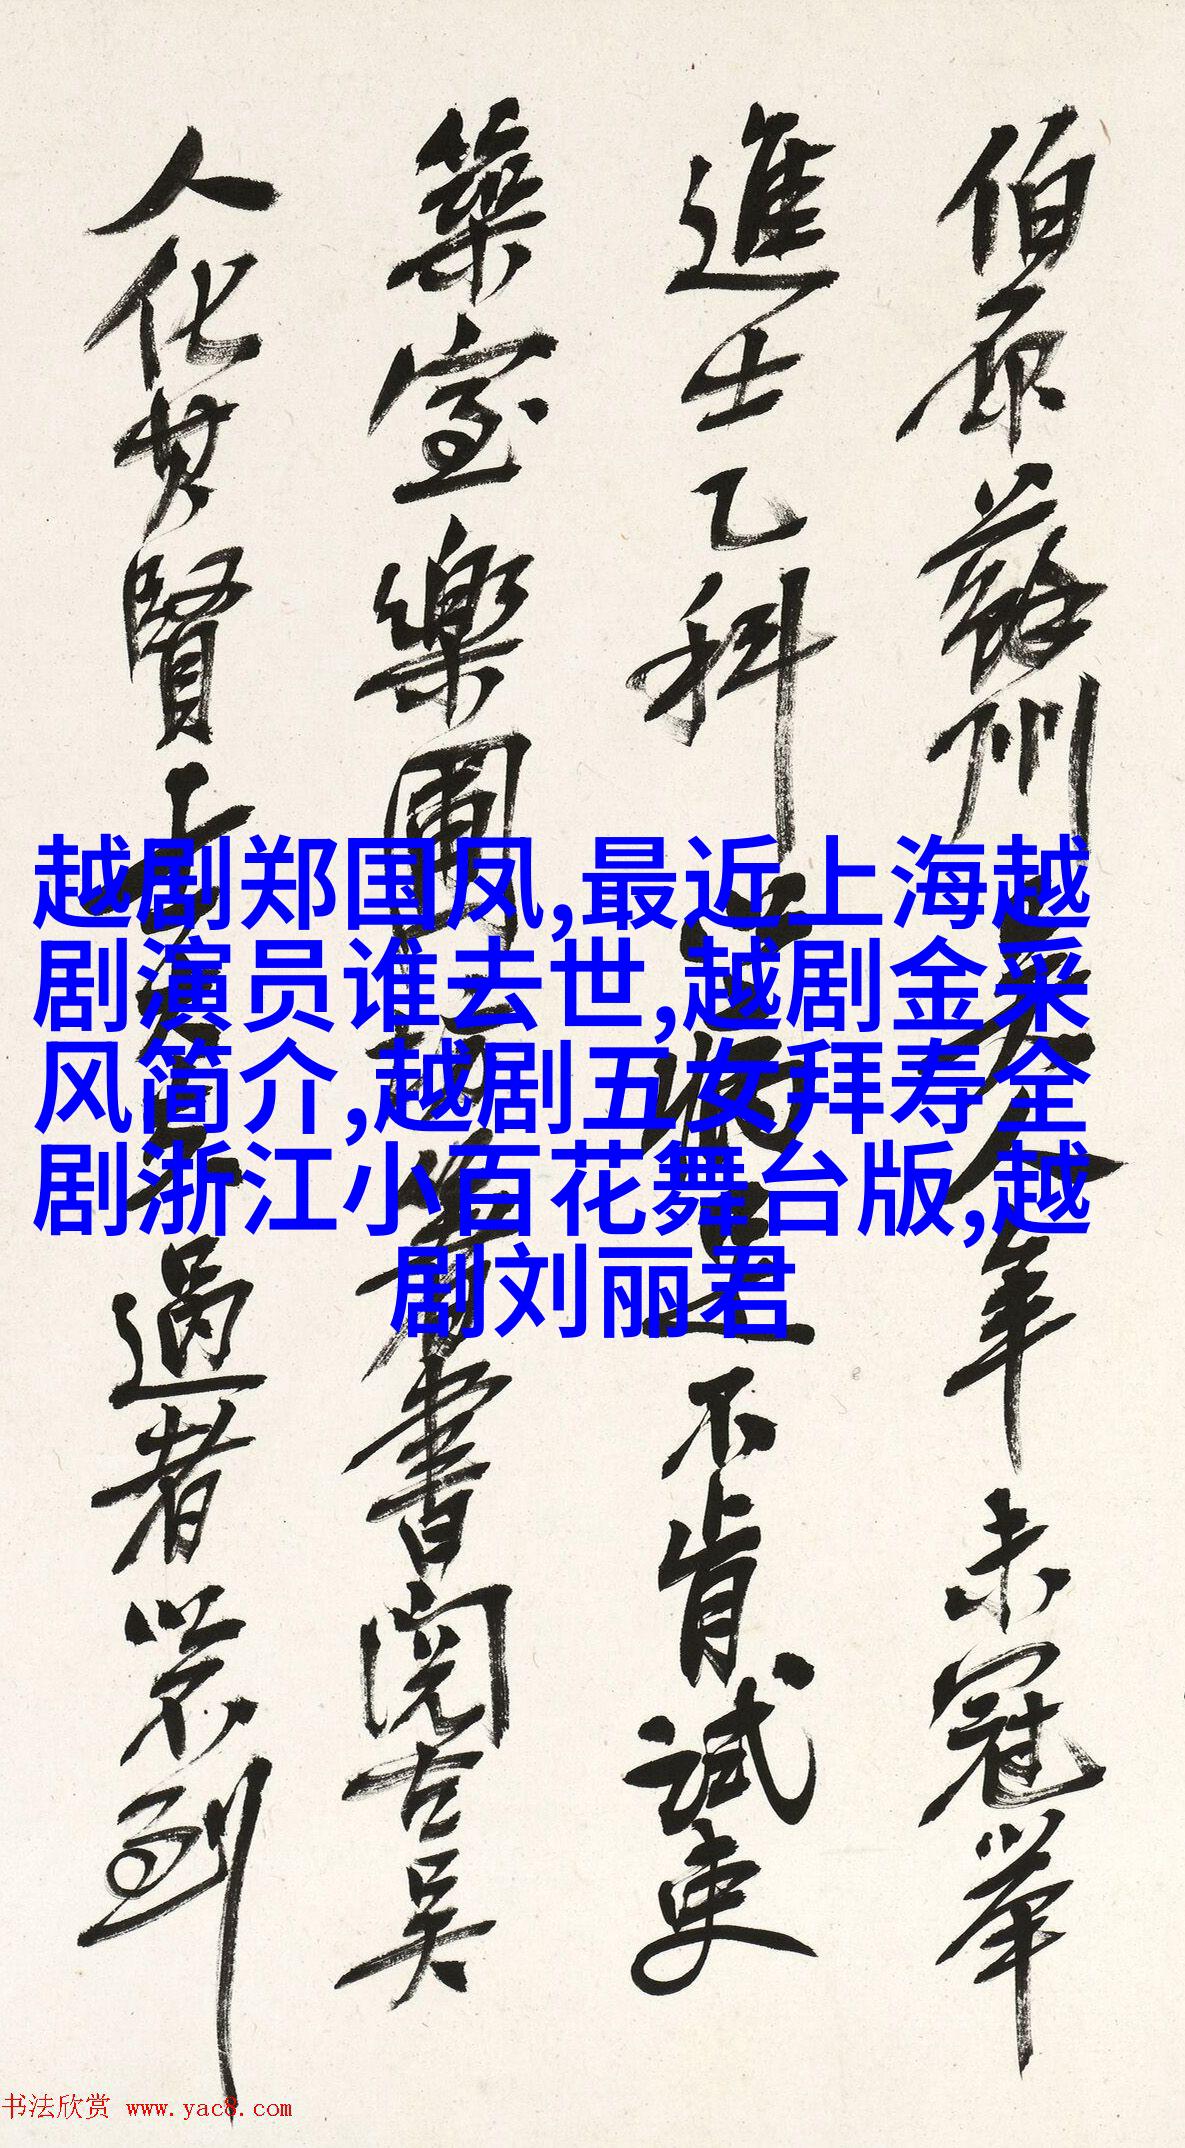 越剧郑国凤,最近上海越
剧演员谁去世,越剧金采
风简介,越剧五女拜寿全
剧浙江小百花舞台版,越
剧刘丽君
伯原蘇州人年未冠舉
進士乙科足不肯試吏
築室樂圃坊著書閱古吳
人化其賢過者以不到
书法欣赏 www.yac8.com